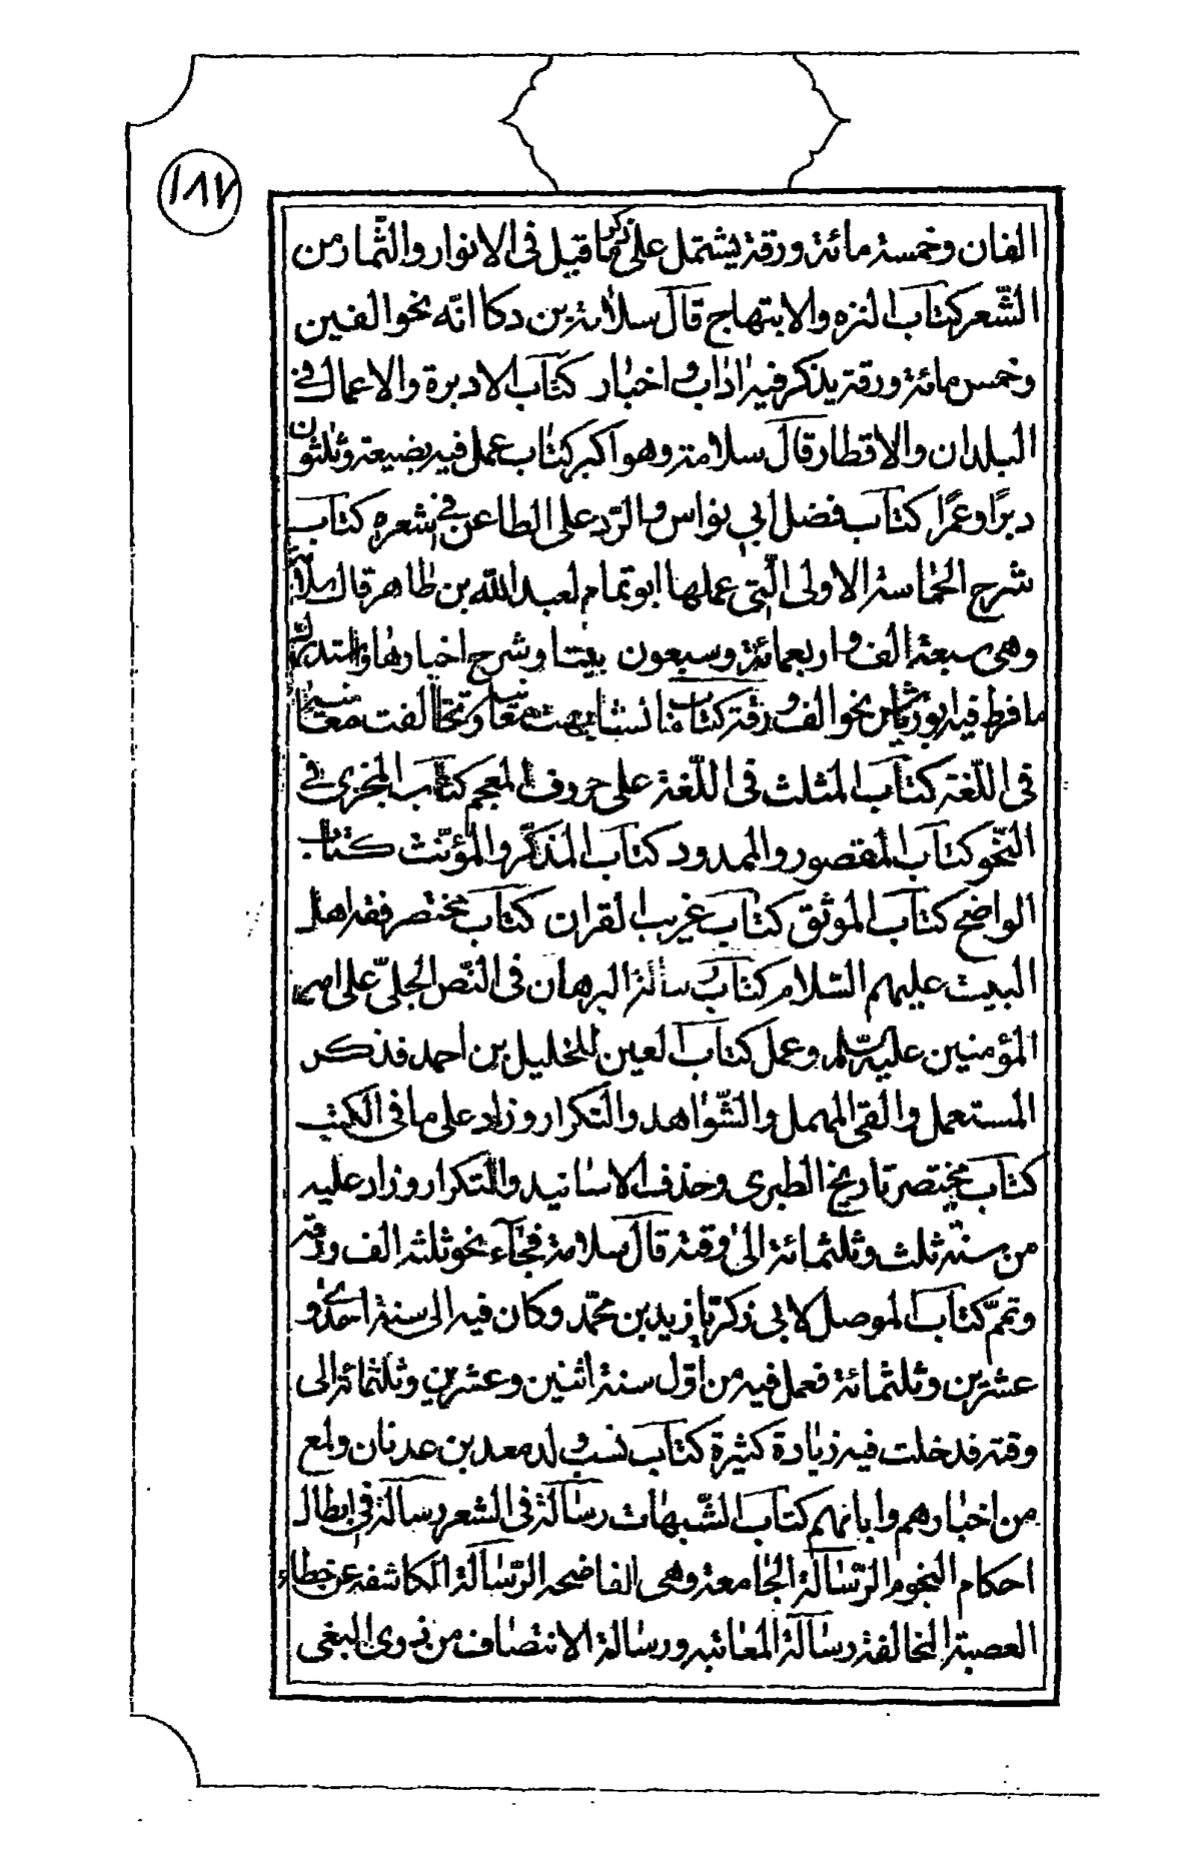 ١٨٧
الفان وخمسة مائة ورقة يشتمل على ذكر ما قيل فى الانوار والثّمار من
الشّعر كتاب النزه والابتهاج قال سلامة بن دكا انّه نحو الفين
وخمس مائة ورقة يذكر فيه اداب واخبار كتاب الاديرة والاعمال فى
البلدان والاقطار قال سلامة وهو اكبر كتاب عمل فيه بضيعة وثلثون
ديرًا وعمرًا كتاب فضل ابي نواس والرّد على الطاعن فى شعره كتاب
شرح الحماسة الاولى الّتى عملها ابو تمام لعبد الله بن طاهر قال سلامة
وهى سبعة الف واربعمائة وسبعون بيتا وشرح اخبارها واستدرك
ما فرط فيه ابو رياش نحو الف ورقة كتاب ما تشابهت مبانيه وتخالفت معانيه
فى اللّغة كتاب المثلث فى اللّغة على حروف المعجم كتاب المجزى فى
النّحو كتاب المقصور والممدود كتاب المذكّر والمؤنّث كتاب
الواضح كتاب الموثق كتاب غريب القران كتاب مختصر فقه اهل
البيت عليهم السّلام كتاب رسالة البرهان فى النّص الجلىّ على امير
المؤمنين عليه السّلم وعمل كتاب العين للخليل بن احمد فذكر
المستعمل والقى المهمل والشّواهد والتكرار وزاد على ما فى الكتب
كتاب مختصر تاريخ الطبرى وحذف الاسانيد والتكرار وزاد عليه
من سنة ثلث وثلثمائة الى وقته قال سلامة فجآء نحو ثلثة الف ورقة
وتمّم كتاب الموصل لابى زكريّا زيد بن محمّد وكان فيه الى سنة احدى و
عشرين وثلثمائة فعمل فيه من اوّل سنة اثنين وعشرين وثلثمائة الى
وقته فدخلت فيه زيادة كثيرة كتاب نسب ولد معد بن عدنان ولمع
من اخبارهم وايامهم كتاب الشّبهات رسالة فى الشعر رسالة فى ابطال
احكام النجوم الرّسالة الجامعة وهى الفاضحه الرّسالة الكاشفه عن خطاء
العصبة المخالفة رسالة المعاتبه ورسالة الانتصاف من ذوى البغى